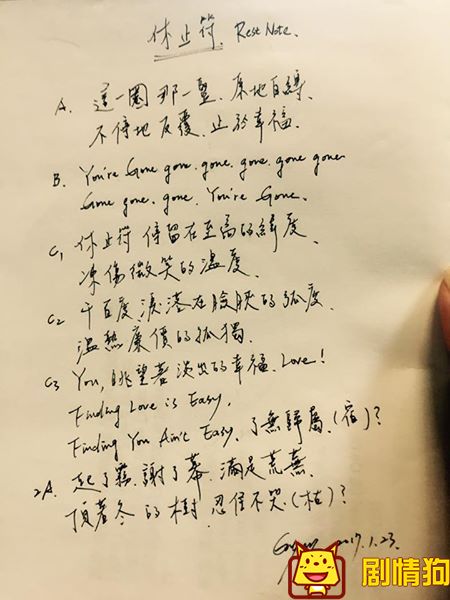 休止符. Rest Note.
A. 這一圈 那一豎. 原地自繞.
不停地反覆. 止於幸福.
B. You're Gone gone. gone. gone. gone gone.
Gone gone. gone. You're Gone.
C1 休止符 停留在至高的緯度.
凍傷微笑的溫度.
C2 千百度 淚落在臉頰的弧度.
溫熱廉價的孤獨.
C3 You, 眺望著淡出的幸福. Love!
Finding Love is Easy.
Finding You Ain't Easy. 了無歸屬. (宿)?
2A. 起了霧. 謝了幕. 滿足荒蕪.
頂著冬的樹. 忍住不哭. (枯)?
2017.1.23.
剧情狗